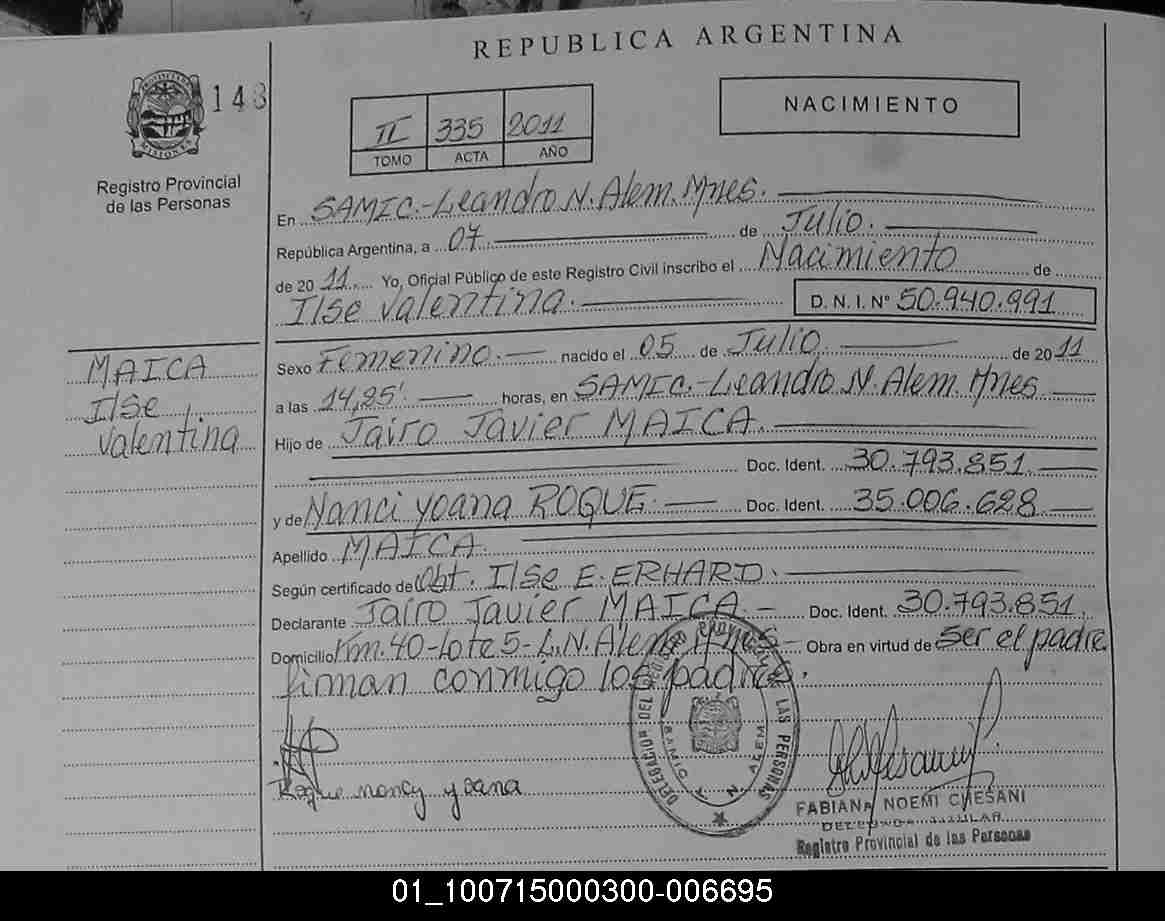 REPUBLICA ARGENTINA
148
NACIMIENTO
II 335 2011
TOMO ACTA AÑO
PROVINCIA DE MISIONES
Registro Provincial
de las Personas
En SAMIC.-Leandro N. Alem. Mnes.
República Argentina, a 07. de Julio.
de 2011 Yo, Oficial Público de este Registro Civil inscribo el Nacimiento de
Ilse Valentina. D. N. I. N° 50.940.991
MAICA
Ilse
Valentina
Sexo Femenino. nacido el 05 de Julio de 2011
a las 14,25' horas, en SAMIC.-Leandro N. Alem. Mnes
Hijo de Jairo Javier MAICA.
Doc. Ident. 30.793.851
y de Nanci Yoana ROQUE. Doc. Ident. 35.006.628
Apellido MAICA.
Según certificado de Obt. Ilse E. ERHARD.
Declarante Jairo Javier MAICA.- Doc. Ident. 30.793.851.
Domicilio Km. 40-Lote 5-L.N. Alem Mnes- Obra en virtud de ser el padre
firman conmigo los padres.
DELEGACION DEL REGISTRO PROVINCIAL DE LAS PERSONAS
SAMIC L. N. ALEM
Roque nancy yoana
FABIANA NOEMI CHESANI
DELEGADA TITULAR
Registro Provincial de las Personas
01_100715000300-006695